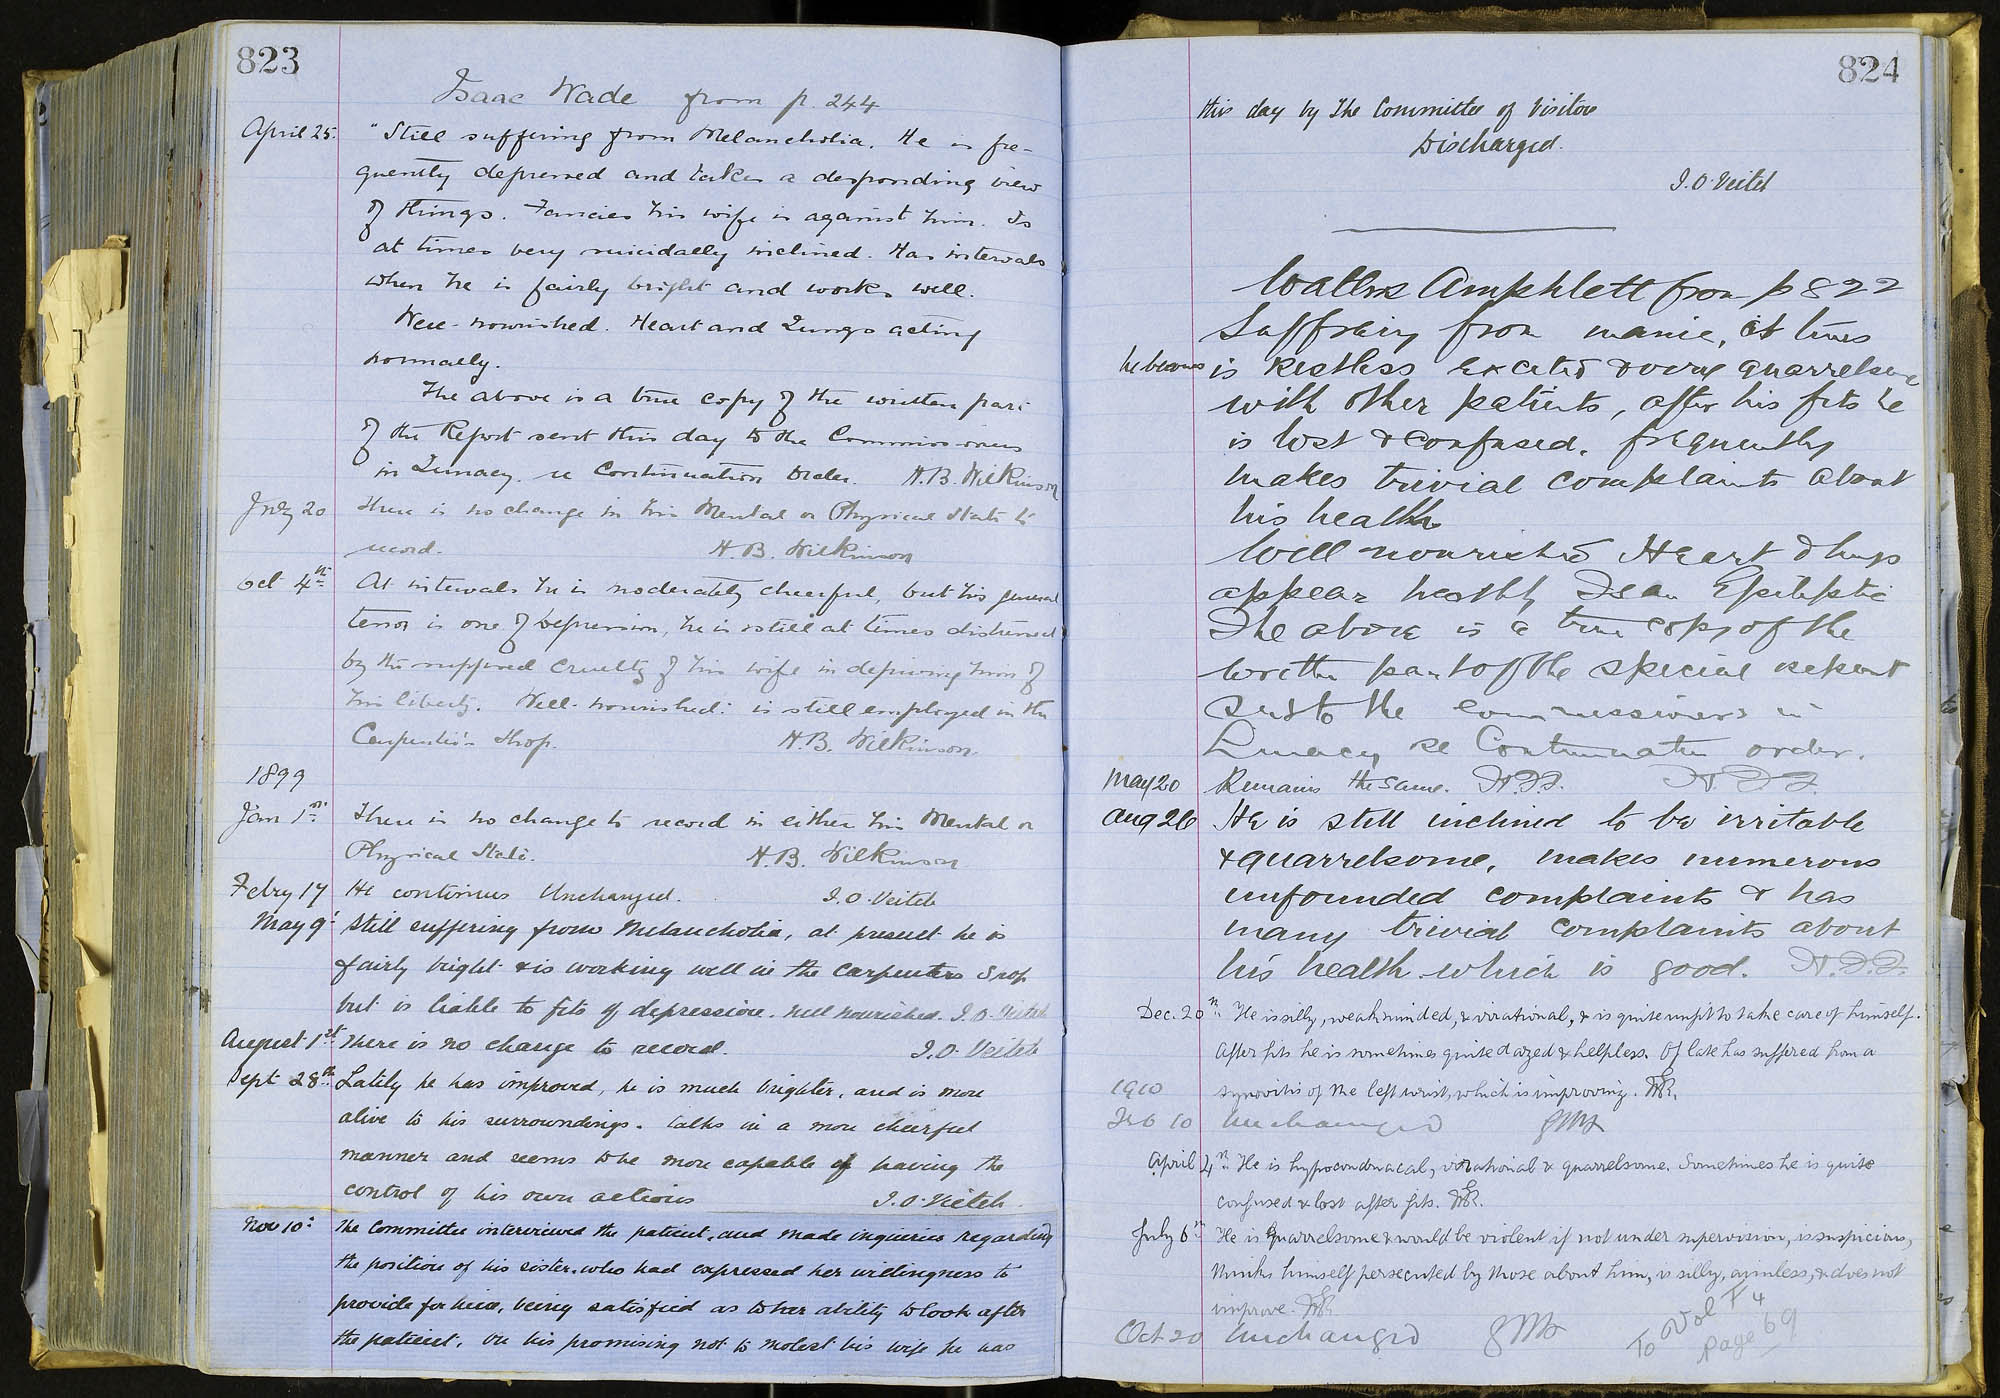 823
Isaac Wade from p. 244
April 25. "Still suffering from Melancholia. He is fre-
quently depressed and takes a desponding view
of things. Fancies his wife is against him. Is
at times very suicidally inclined. Has intervals
when he is fairly bright and works well.
Well-nourished. Heart and Lungs acting
normally.
The above is a true copy of the written part
of the Report sent this day to the Commissioners
in Lunacy re Continuation Order. H.B. Wilkinson
July 20 There is no change in his Mental or Physical State to
record. H.B. Wilkinson
Oct 4th At intervals he is moderately cheerful, but his general
tenor is one of Depression, he is still at times distressed
by the supposed cruelty of his wife in depriving him of
his liberty. Well-nourished: is still employed in the
Carpenter's Shop. H.B. Wilkinson.
1899
Jan 1st There is no change to record in either his Mental or
Physical State. H.B. Wilkinson
Febry 17 He continues Unchanged. J.O. Veitch
May 9th Still suffering from Melancholia, at present he is
fairly bright & is working well in the Carpenters Shop
but is liable to fits of depression. Well nourished. J.O. Veitch
August 1st There is no change to record. J.O. Veitch
Sept 28th Lately he has improved, he is much brighter, and is more
alive to his surroundings. talks in a more cheerful
manner and seems to be more capable of having the
control of his own actions J.O. Veitch.
Nov 10th The Committee interviewed the patient, and made inquiries regarding
the position of his sister, who had expressed her willingness to
provide for him, being satisfied as to her ability to look after
the patient. On his promising not to molest his wife he was
824
this day by The Committee of Visitors
Discharged.
J.O. Veitch
Amphlett from p 822
Suffering from mania, at times
he becomes is restless excited & very quarrelsome
with other patients, after his fits he
is lost & confused. frequently
makes trivial complaints about
his health
Well nourished Heart & lungs
appear healthy Is an Epileptic
The above is a true copy of the
written part of the special report
sent to the Commissioners in
Lunacy re Continuation order.
May 20 Remains the same.
Aug 26 He is still inclined to be irritable
& quarrelsome, makes numerous
unfounded complaints & has
many trivial complaints about
his health which is good.
Dec. 20th He is silly, weakminded, & irrational, & is quite unfit to take care of himself.
After fits he is sometimes quite dazed & helpless. Of late has suffered from a
1910 synovitis of the left wrist, which is improving.
Feb 10 Unchanged
April 4th He is hypocondriacal, irrational & quarrelsome. Sometimes he is quite
confused & lost after fits.
July 6th He is Quarrelsome & would be violent if not under supervision, is suspicious,
thinks himself persecuted by those about him, is silly, aimless, & does not
improve.
Oct 20 Unchanged
To Vol F 4
page 69